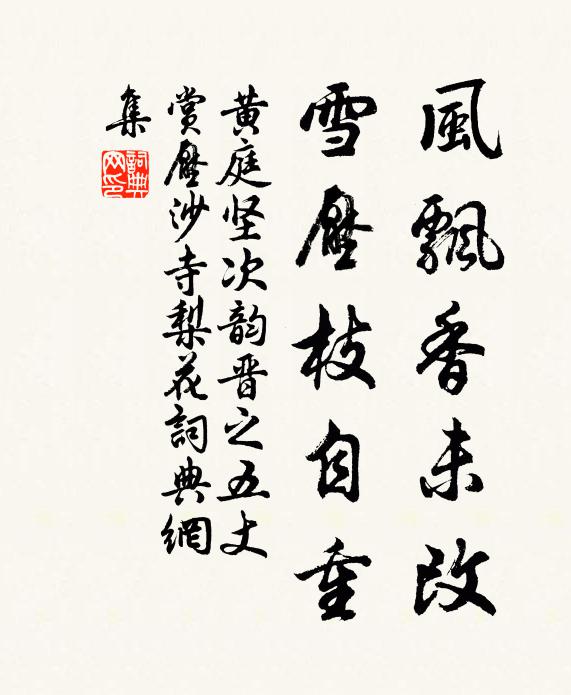 風飄香未改
雪壓枝自重
黄庭坚次韵晋之五丈
賞壓沙寺梨花詞典網
集
詞典
网印